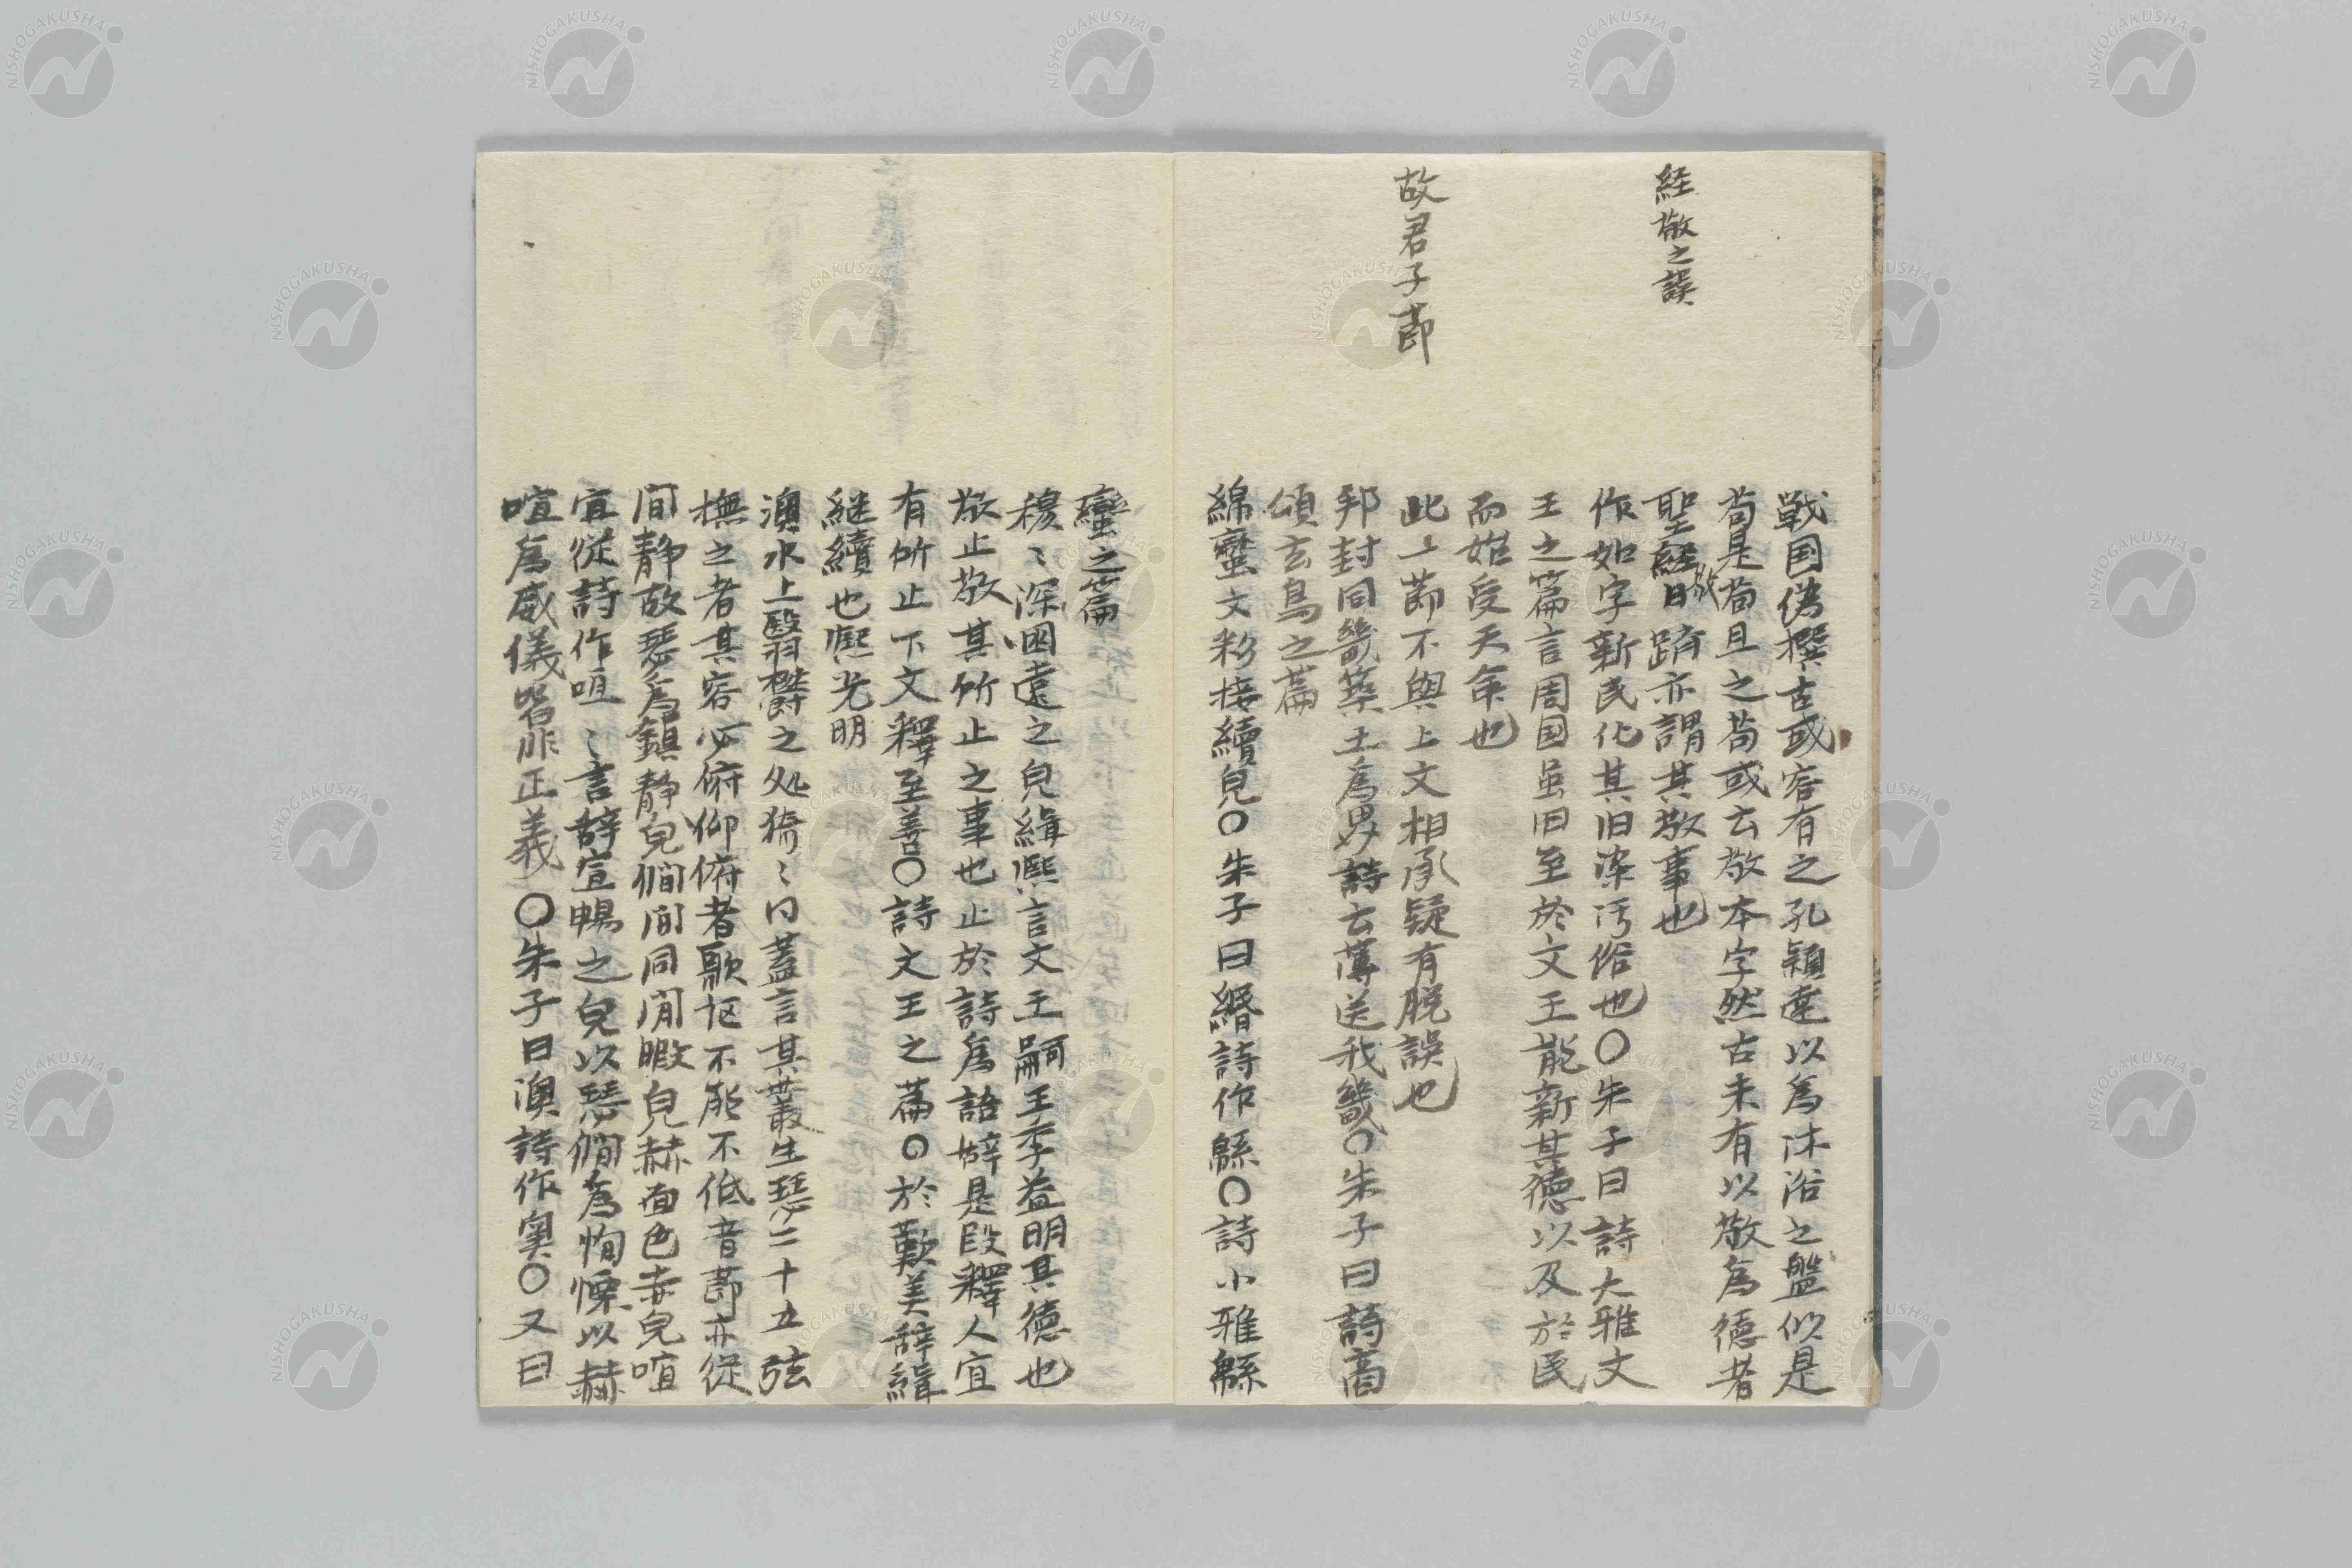 経敬之誤
故君子節
戦国偽撰古或容有之孔穎達以為沐浴之盤似是
苟是苟且之苟或云敬本字然古未有以敬為徳者
聖経敬日躋亦謂其敬事也
作如字新民化其旧染汚俗也〇朱子曰詩大雅文
王之篇言周国虽旧至於文王能新其徳以及於民
而始受天命也
此一節不與上文相承疑有脱誤也
邦封同畿築土為界詩云薄送我畿〇朱子曰詩商
頌玄鳥之篇
綿蛮文彩接續皃〇朱子曰緡詩作緜〇詩小雅緜
蠻之篇
穆〻深遠之皃緝熙言文王嗣王季益明其徳也
敬止敬其所止之事也止於詩為語辞是段釋人宜
有所止下文釋至善〇詩文王之篇〇於歎美辞緝
継續也熙光明
澳水上翳欝之処猗〻蓋言其叢生瑟二十五弦
撫之者其容必俯仰俯者歌謳不能不低音節亦従
間静故瑟為鎮静皃僩間同閒暇皃赫面色赤皃喧
宜従詩作咺〻言辞宣暢之皃以瑟僩為恂慄以赫
喧為威儀咎非正義〇朱子曰澳詩作奥〇又曰
NISHOGAKUSHA